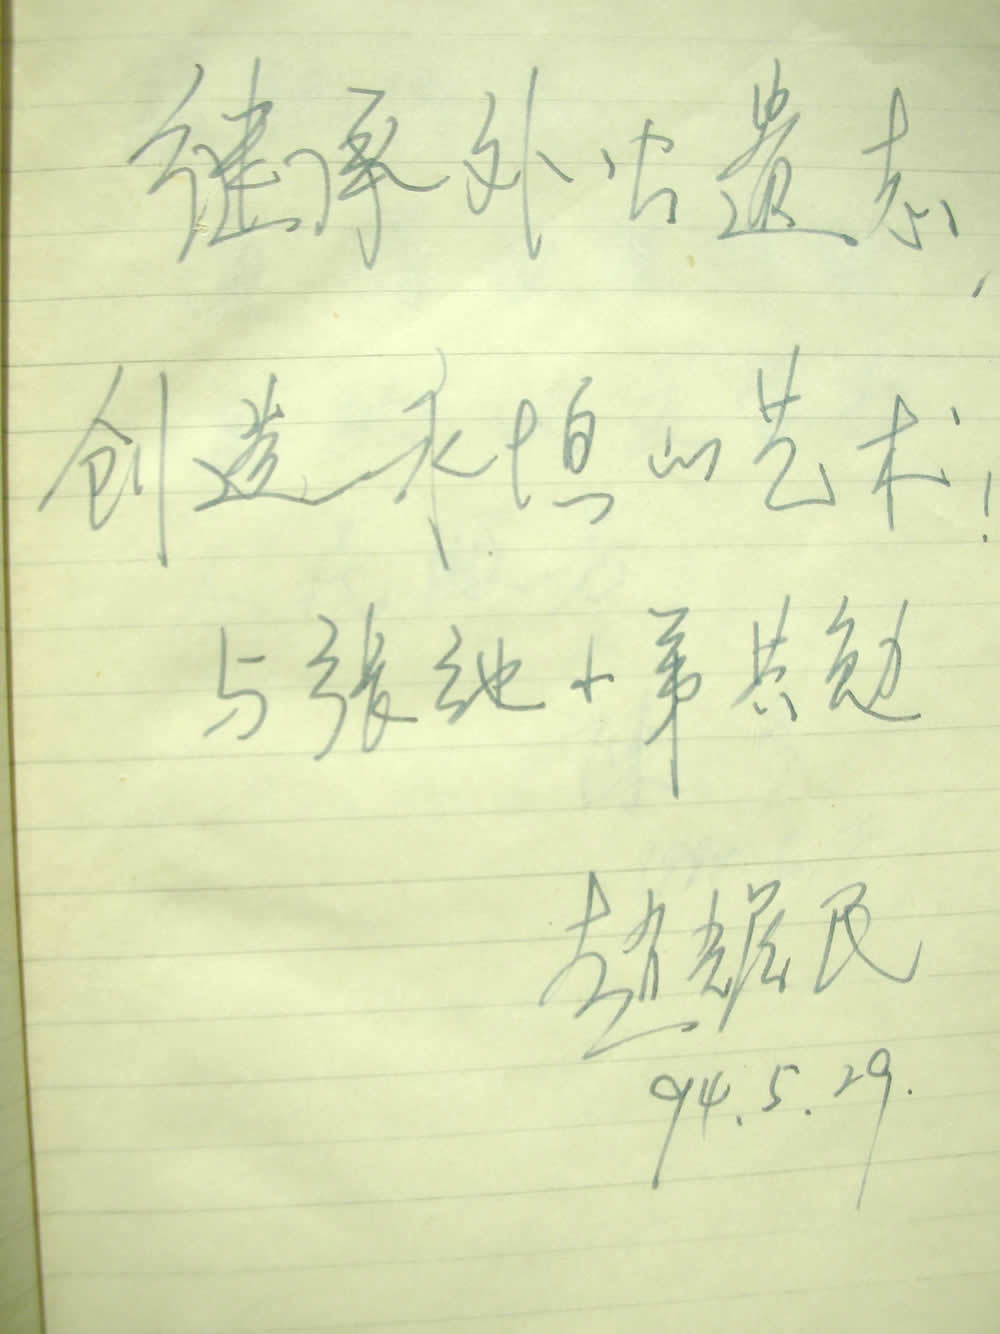 继承外公遗志，
创造永恒的艺术！
与張弛小弟共勉
趙耀民
94.5.29.